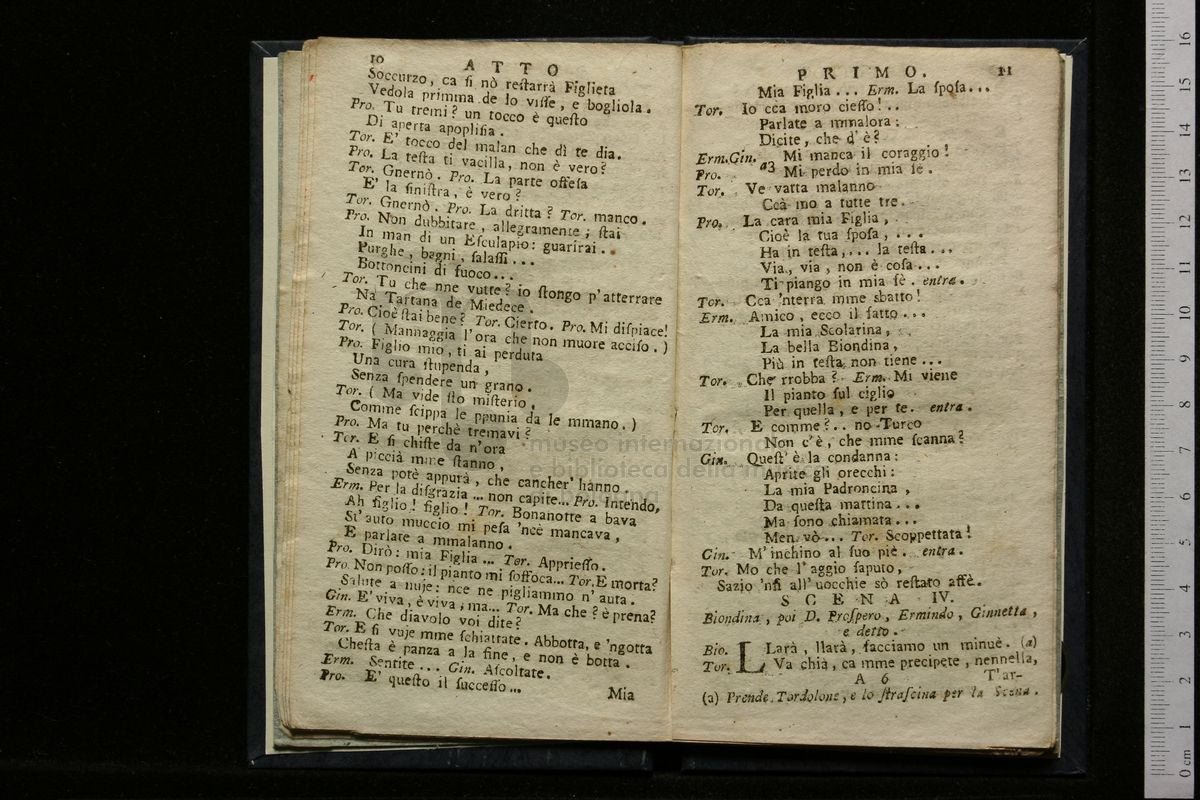 10 ATTO
Soccurzo, ca ſi nò reſtarrà Figlieta
Vedola primma de lo viſſe, e bogliola.
Pro. Tu tremi? un tocco è queſto
Di aperta apopliſia.
Tor. E' tocco del malan che dì te dia.
Pro. La teſta ti vacilla, non è vero?
Tor. Gnernò. Pro. La parte offeſa
E' la ſiniſtra, è vero?
Tor. Gnernò. Pro. La dritta? Tor. manco.
Pro. Non dubbitare, allegramente; ſtai
In man di un Eſculapio: guarirai..
Purghe, bagni, ſalaſſi...
Bottoncini di fuoco...
Tor. Tu che nne vutte? io ſtongo p'atterrare
Na Tartana de Miedece.
Pro. Cioè ſtai bene? Tor. Cierto. Pro. Mi diſpiace!
Tor. ( Mannaggia l'ora che non muore acciſo. )
Pro. Figlio mio, ti ai perduta
Una cura ſtupenda,
Senza ſpendere un grano.
Tor. ( Ma vide ſto miſterio,
Comme ſcippa le ppunia da le mmano. )
Pro. Ma tu perchè tremavi?
Tor. E ſi chiſte da n'ora
A piccià mme ſtanno,
Senza potè appurà, che cancher' hanno.
Erm. Per la diſgrazia... non capite... Pro. Intendo,
Ah figlio! figlio! Tor. Bonanotte a bava
St'auto muccio mi peſa 'nce mancava,
E parlate a mmalanno.
Pro. Dirò: mia Figlia... Tor. Apprieſſo.
Pro. Non poſſo: il pianto mi ſoffoca... Tor. E morta?
Salute a nuje: nce ne pigliammo n' auta.
Gin. E' viva, è viva; ma... Tor. Ma che? è prena?
Erm. Che diavolo voi dite?
Tor. E ſi vuje mme ſchiattate. Abbotta, e 'ngotta
Cheſta è panza a la fine, e non è botta.
Erm. Sentite... Gin. Aſcoltate.
Pro. E' queſto il ſucceſſo...
Mia
PRIMO. 11
Mia Figlia... Erm. La ſpoſa...
Tor. Io cca moro cieſſo!..
Parlate a mmalora:
Dicite, che d' è?
Erm.Gin. a3 Mi manca il coraggio!
Pro. Mi perdo in mia fè.
Tor. Ve vatta malanno
Ccà mo a tutte tre.
Pro. La cara mia Figlia,
Cioè la tua ſpoſa, ...
Ha in teſta,... la teſta...
Via, via, non è coſa...
Ti piango in mia fè. entra.
Tor. Cca 'nterra mme sbatto!
Erm. Amico, ecco il fatto...
La mia Scolarina,
La bella Biondina,
Più in teſta non tiene...
Tor. Che rrobba? Erm. Mi viene
Il pianto ſul ciglio
Per quella, e per te. entra.
Tor. E comme?.. no Turco
Non c'è, che mme ſcanna?
Gin. Queſt' è la condanna:
Aprite gli orecchi:
La mia Padroncina,
Da queſta mattina...
Ma ſono chiamata...
Men vò... Tor. Scoppettata!
Gin. M' inchino al ſuo piè. entra.
Tor. Mo che l' aggio ſaputo,
Sazio 'nfi all' uocchie sò reſtato affè.
SCENA IV.
Biondina, poi D. Proſpero, Ermindo, Ginnetta,
e detto.
Bio. Larà, llarà, facciamo un minuè. (a)
Tor. Va chià, ca mme precipete, nennella,
A 6 T'ar-
(a) Prende Tordolone, e lo ſtraſcina per la Scena.
museo internazionale
e biblioteca della musica
di bologna